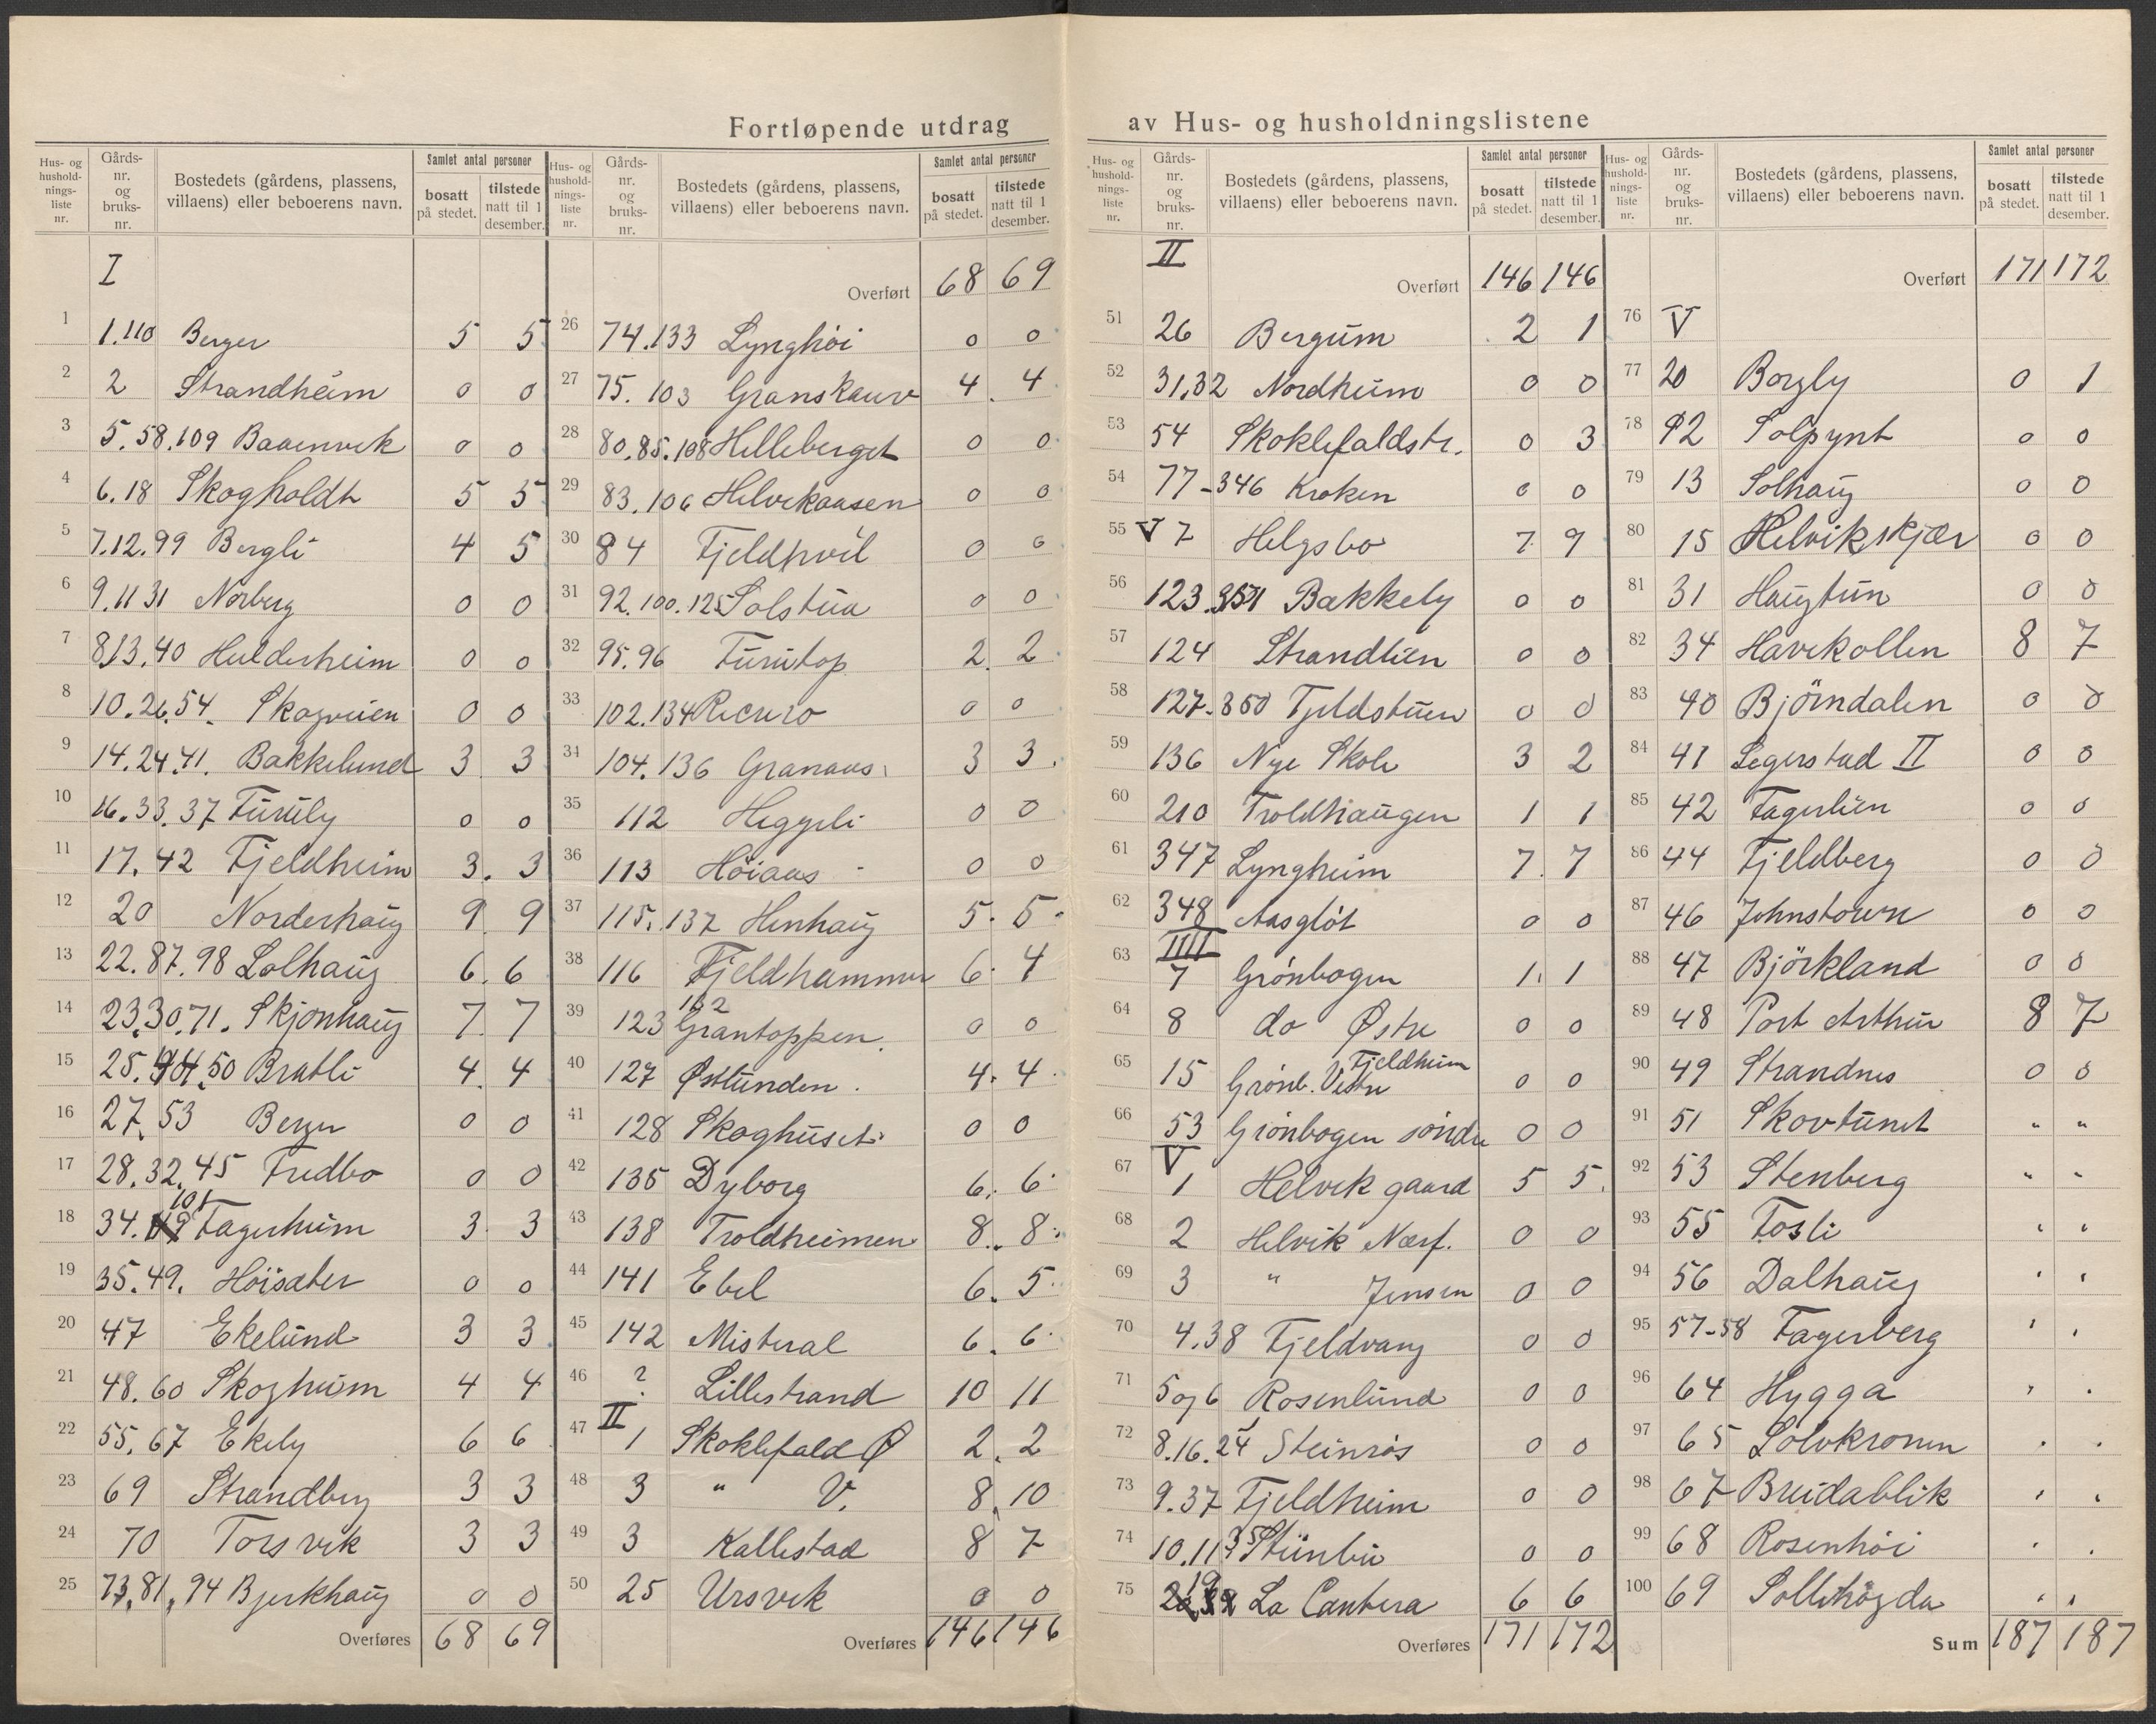 Fortløpende utdrag av Hus- og husholdningslistene
Hus- og hushold-nings-liste nr. Gårds-nr. og bruks-nr. Bostedets (gårdens, plassens, villaens) eller beboerens navn. Samlet antal personer bosatt på stedet. tilstede natt til 1 desember.
I
1 1.110 Berger 5 5
2 2 Strandheim 0 0
3 5.58.109 Baaenvik 0 0
4 6.18 Skogholdt 5 5
5 7.12.99 Bergli 4 5
6 9.11 31 Norberg 0 0
7 8.13.40 Hulderheim 0 0
8 10.26.54. Skogveien 0 0
9 14.24.41. Bakkelund 3 3
10 16.33.37 Furuly 0 0
11 17.42 Fjeldheim 3. 3
12 20 Norderhaug 9 9
13 22.87.98 Solhaug 6. 6
14 23.30.71. Skjønhaug 7. 7
15 25. 50 Bratli 4. 4
16 27.53 Berger 0 0
17 28.32.45 Fredbo 0 0
18 34. 101 Fagerheim 3 3
19 35.49. Høisæter 0 0
20 47 Ekelund 3 3
21 48.60 Skogheim 4 4
22 55.67 Ekely 6 6
23 69 Strandberg 3 3
24 70 Torsvik 3 3
25 73.81.94 Bjerkhaug 0 0
Overføres 68 69
Hus- og hushold-nings-liste nr. Gårds-nr. og bruks-nr. Bostedets (gårdens, plassens, villaens) eller beboerens navn. Samlet antal personer bosatt på stedet. tilstede natt til 1 desember.
Overført 68 69
26 74.133 Lynghøi 0 0
27 75.103 Granskauv 4. 4
28 80.85.108 Helleberget 0 0
29 83.106 Helvikaasen 0 0
30 84 Fjeldhvil 0 0
31 92.100.125 Solstua 0 0
32 95.96 Furutop 2. 2
33 102.134 0 0
34 104.136 Granaas 3 3.
35 112 Heggeli 0 0
36 113 Høiaas 0 0
37 115.137 Henhaug 5. 5.
38 116 Fjeldhammer 6. 4
39 123 132 Grantoppen. 0 0
40 127 Østlunden. 4. 4
41 128 Skoghuset 0 0
42 135 Dyborg 6. 6.
43 138 Troldheimen 8. 8.
44 141 Ebel 6. 5.
45 142 Misteral 6. 6.
46 ? Lillestrand 10 11
II
47 1 Skoklefald Ø 2. 2
48 3 " V. 8. 10
49 3 Kallestad 8 7
50 25 Ursvik 0 0
Overføres 146 146
Hus- og hushold-nings-liste nr. Gårds-nr. og bruks-nr. Bostedets (gårdens, plassens, villaens) eller beboerens navn. Samlet antal personer bosatt på stedet. tilstede natt til 1 desember.
II
Overført 146 146
51 26 Bergum 2 1
52 31.32 Nordheim 0 0
53 54 Skoklefaldstr. 0 3
54 77-346 Kroken 0 0
55 V 7 Helgsbo 7. 9
56 123.351 Bakkely 0 0
57 124 Strandlien 0 0
58 127-350 Fjeldstuen 0 0
59 136 Nye Skole 3 2
60 210 Troldhaugen 1 1
61 347 Lyngheim 7. 7
62 348 Aasgløt 0 0
IIII
63 7 Grønbogen 1. 1
64 8 do Østre 0 0
65 15 Grønb. Vestre Fjeldheim 0 0
66 53 Grønbogen søndre 0 0
V
67 1 Helvik gaard 5 5.
68 2 Helvik Næsf. 0 0
69 3 " Jensen 0 0
70 4.38 Fjeldvang 0 0
71 5 og 6 Rosenlund 0 0
72 8.16.24 Steinrøs 0 0
73 9.37 Fjeldheim 0 0
74 10.11.35 Stuinbu 0 0
75 19 La Cantera 6 6
Overføres 171 172
Hus- og hushold-nings-liste nr. Gårds-nr. og bruks-nr. Bostedets (gårdens, plassens, villaens) eller beboerens navn. Samlet antal personer bosatt på stedet. tilstede natt til 1 desember.
Overført 171 172
76 V
77 20 Borgly 0 1
78 12 Solpynt 0 0
79 13 Solhaug 0 0
80 15 Helvikskjær 0 0
81 31 Haugtun 0 0
82 34 Havikollen 8 7
83 40 Bjørndalen 0 0
84 41 Segerstad II 0 0
85 42 Fagerlien 0 0
86 44 Fjeldberg 0 0
87 46 Johnstown 0 0
88 47 Björkland 0 0
89 48 Port Arthur 8 7
90 49 Strandnes 0 0
91 51 Skovtunet " "
92 53 Stenberg " "
93 55 Fosli " "
94 56 Dalhaug " "
95 57-58 Fagerberg " "
96 64 Hygga " "
97 65 Solvkronen " "
98 67 Breidablik " "
99 68 Rosenhøi " "
100 69 Sollihøgda " "
Sum 187 187